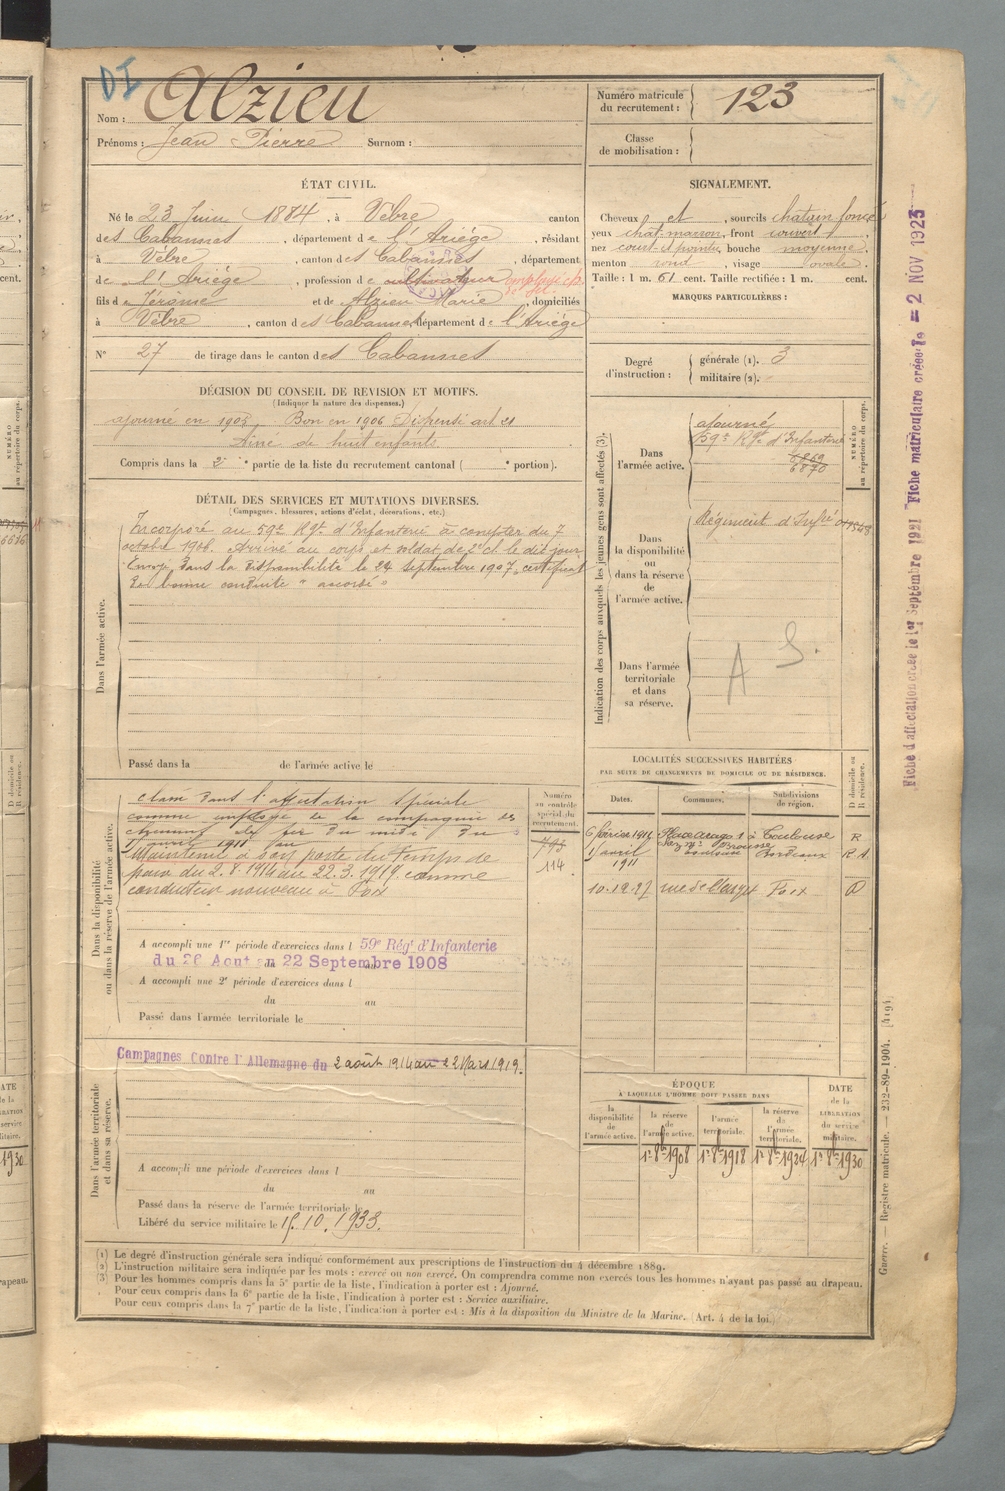 DI
Nom : Alzieu
Prénoms : Jean Pierre Surnom :
Numéro matricule du recrutement : 123
Classe de mobilisation :
ÉTAT CIVIL.
Né le 23 Juin 1884, à Vèbre canton
des Cabannes, département de l'Ariége, résidant
à Vèbre, canton des Cabannes, département
de l'Ariége, profession de cultivateur employé
fils de Jérome et de Alzieu Marie, domiciliés
à Vèbre, canton des Cabannes, département de l'Ariége
N° 27 de tirage dans le canton des Cabannes
SIGNALEMENT.
Cheveux et, sourcils chatain foncé
yeux chat. marron, front couvert
nez court et pointu, bouche moyenne,
menton rond, visage ovale.
Taille : 1 m. 61 cent. Taille rectifiée : 1 m. cent.
MARQUES PARTICULIÈRES :
Degré d'instruction : générale (1). 3
militaire (2).
DÉCISION DU CONSEIL DE REVISION ET MOTIFS.
(Indiquer la nature des dispenses.)
ajourné en 1905, Bon en 1906 Dispensé art 21
Ainé de huit enfants.
Compris dans la 2e partie de la liste du recrutement cantonal ( e portion).
DÉTAIL DES SERVICES ET MUTATIONS DIVERSES.
(Campagnes, blessures, actions d'éclat, décorations, etc.)
Dans l'armée active.
Incorporé au 59e Rgt d'Infanterie à compter du 7
octobre 1906. Arrivé au corps et soldat de 2e cl. le dit jour
Envoyé dans la disponibilité le 24 septembre 1907, certificat
de bonne conduite "accordé"
Passé dans la de l'armée active le
Indication des corps auxquels les jeunes gens sont affectés (3).
NUMÉRO au répertoire du corps.
Dans l'armée active.
ajourné
59e Rgt d'Infanterie
6869
6870
Dans la disponibilité ou dans la réserve de l'armée active.
Régiment d'Infie
Dans l'armée territoriale et dans sa réserve.
A S.
Dans la disponibilité ou dans la réserve de l'armée active.
Classé dans l'affectation spéciale
comme employé de la compagnie des
chemins de fer du midi du
1 avril 1911 au
Maintenu à son poste du temps de
paix du 2.8.1914 au 22.3.1919 comme
conducteur nouveau à Foix
Numéro au contrôle spécial du recrutement.
793
114
A accompli une 1re période d'exercices dans l 59e Régt d'Infanterie
du 26 Aout au 22 Septembre 1908
A accompli une 2e période d'exercices dans l
du au
Passé dans l'armée territoriale le
LOCALITÉS SUCCESSIVES HABITÉES
PAR SUITE DE CHANGEMENTS DE DOMICILE OU DE RÉSIDENCE.
Dates. Communes. Subdivisions de région. D domicile ou R résidence.
6 février 1911 Place arago 1 à Toulouse R
1 avril 1911 Bordeaux R A
10.12.27 rue de Foix D
Dans l'armée territoriale et dans sa réserve.
Campagnes Contre l'Allemagne du 2 août 1914 au 22 Mars 1919.
A accompli une période d'exercices dans l
du au
Passé dans la réserve de l'armée territoriale le
Libéré du service militaire le 15.10.1933.
ÉPOQUE
À LAQUELLE L'HOMME DOIT PASSER DANS
la disponibilité de l'armée active. la réserve de l'armée active. l'armée territoriale. la réserve de l'armée territoriale.
DATE de la LIBÉRATION du service militaire.
1er 8bre 1908 1er 8bre 1918 1er 8bre 1924 1er 8bre 1930
(1) Le degré d'instruction générale sera indiqué conformément aux prescriptions de l'instruction du 4 décembre 1889.
(2) L'instruction militaire sera indiquée par les mots : exercé ou non exercé. On comprendra comme non exercés tous les hommes n'ayant pas passé au drapeau.
(3) Pour les hommes compris dans la 5e partie de la liste, l'indication à porter est : Ajourné.
Pour ceux compris dans la 6e partie de la liste, l'indication à porter est : Service auxiliaire.
Pour ceux compris dans la 7e partie de la liste, l'indication à porter est : Mis à la disposition du Ministre de la Marine. (Art. 4 de la loi.)
Fiche d'affectation créée le 1er Septembre 1921 Fiche matriculaire créée le = 2 NOV. 1923
Guerre. — Registre matricule. — 232-89-1904. [4194]